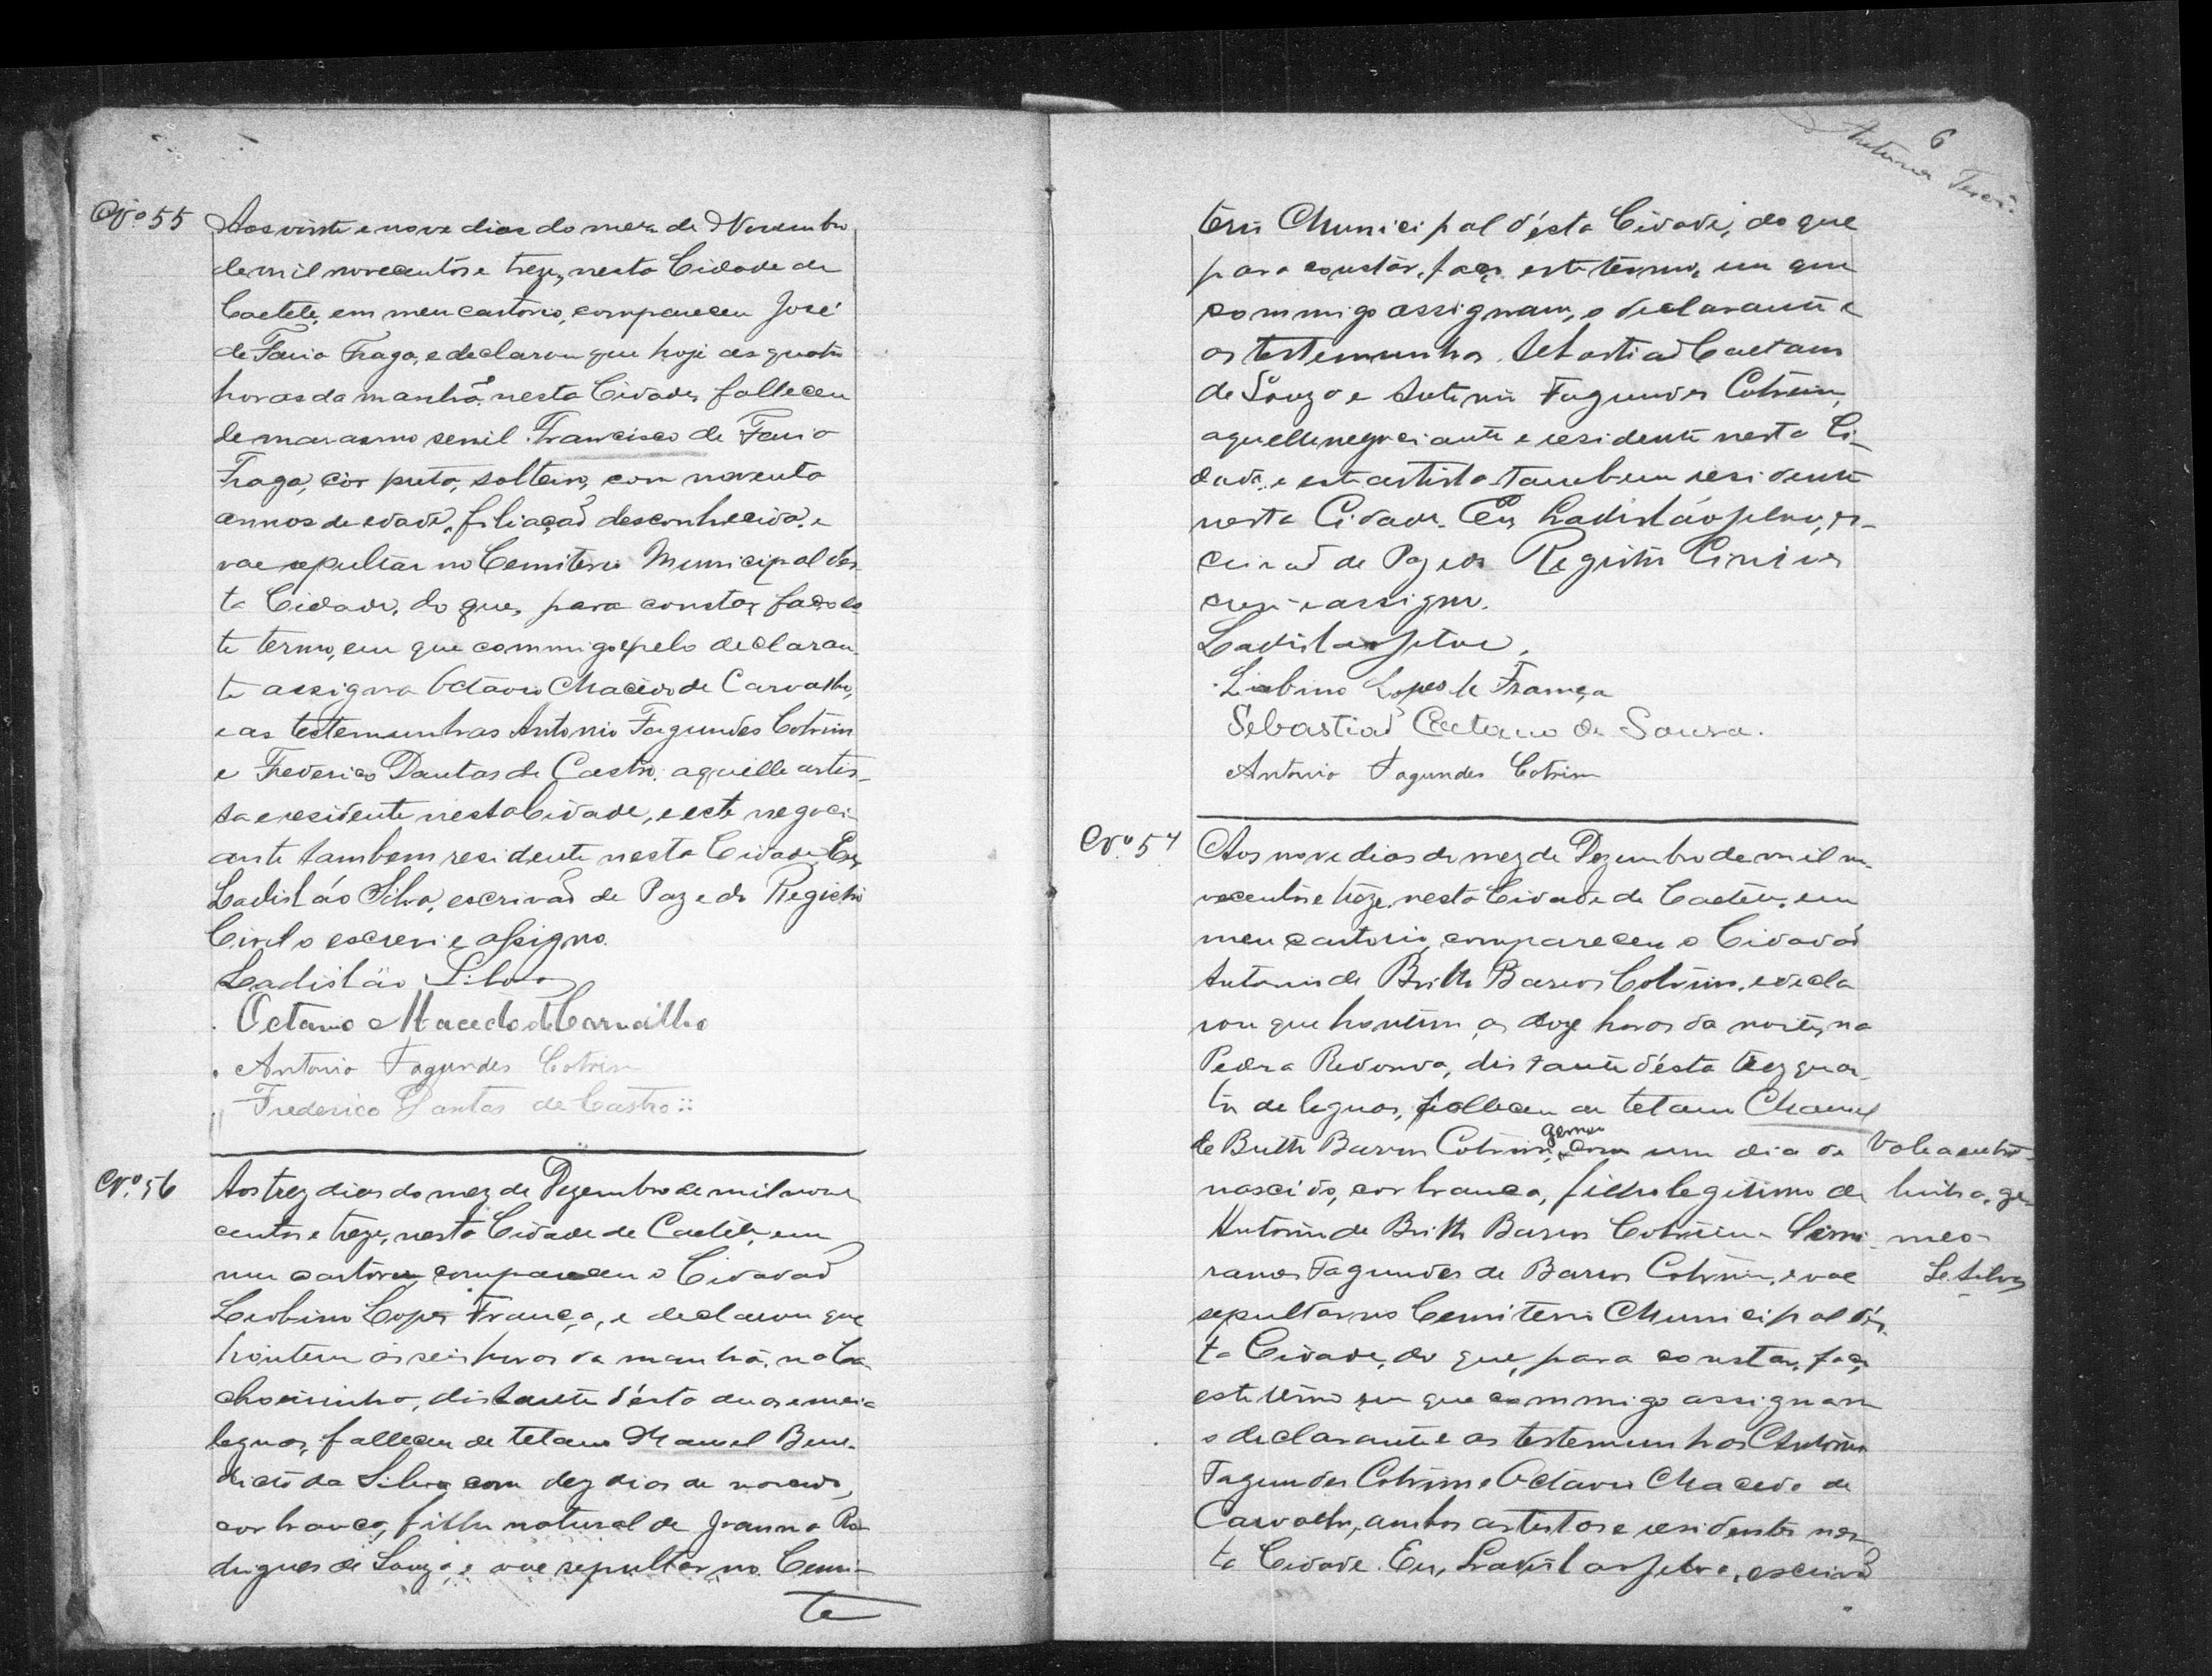 Nº 55
Aos vinte e nove dias do mez de Novembro
de mil novecentos e treze, nesta Cidade de
Caetete, em meu cartorio, compareceu José
de Faria Fraga, e declarou que hoje as quatro
horas da manhã, nesta Cidade, falleceu
de marasmo senil Francisco de Faria
Fraga, côr preta, solteiro, com noventa
annos de edade, filiação desconhecida, e
vae sepultar no Cemiterio Municipal d'es-
ta Cidade, do que, para constar, faço es-
te termo, em que commigo e pelo declaran-
te assigna Octavio Macêdo de Carvalho,
e as testemunhas Antonio Fagundes Cotrim
e Frederico Dantas de Castro, aquelle artis-
ta e residente nesta Cidade, e este negoci-
ante tambem residente nesta Cidade. Eu,
Ladisláo Silva, escrivão de Paz e do Registro
Civil o escrevi e assigno.
Ladisláo Silva
Octavio Macedo de Carvalho
Antonio Fagundes Cotrim
Frederico Dantas de Castro
Nº 56
Aos trez dias do mez de Dezembro de mil nove
centos e treze, nesta Cidade de Caeteté, em
meu cartorio, compareceu o Cidadão
Leobino Lopes França, e declarou que
hontem ás seis horas da manhã, na Ca-
choeirinha, distante d'esta duas e meia
leguas, falleceu de tetano Manoel Bene-
dicto da Silva com dez dias de nascido,
cor branca, filho natural de Joanna Ro-
drigues de Souza, e vae sepultar no Cemi-
te
6
terio Municipal d'ésta Cidade, do que
para constar, faço este termo, em que
commigo assignam, o declarante e
as testemunhas Sebastião Caetano
de Souza e Antonio Fagundes Cotrim,
aquelle negociante e residente nesta Ci-
dade, e este artista tambem residente
nesta Cidade. Eu, Ladisláo Silva, es-
crivão de Paz e do Registro Civil o es-
crevi e assigno.
Ladislao Silva.
Liobino Lopes de França
Sebastião Caetano de Souza.
Antonio Fagundes Cotrim
Nº 57
Aos nove dias do mez de Dezembro de mil no-
vecentos e treze, nesta Cidade de Caeteté, em
meu cartorio, compareceu o Cidadão
Antonio de Britto Barros Cotrim, e decla
rou que hontem, as doze horas da noite, na
Pedra Redonda, distante d'ésta trez quar-
tos de leguas, falleceu de tetano Manoel
de Britto Barros Cotrim, gemeo com um dia de
nascido, cor branca, filho legitimo de
Antonio de Britto Barros Cotrim e
Fagundes de Barros Cotrim, e vae
sepultar no Cemiterio Municipal d'és-
ta Cidade, do que, para constar, faço
este termo em que commigo assignam
o declarante e as testemunhas Antonio
Fagundes Cotrim e Octavio Macedo de
Carvalho, ambos artistas e residentes nes-
ta Cidade. Eu, Ladislao Silva, escrivão
Vale a entre-
linha, ge-
meo
L. Silva